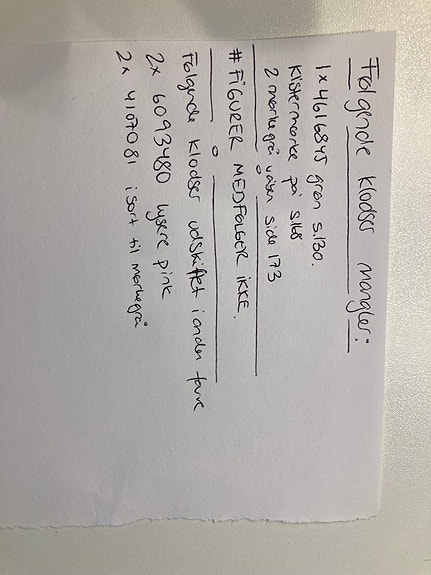 Følgende klodser mangler:
1x 4616845 grøn s.130.
Klistermærke på s.168
2 mørkegrå våben side 173
# FIGURER MEDFØLGER IKKE.
Følgende klodser udskiftet i anden farve
2x 6093480 lysere pink
2x 4107081 i sort til mørkegrå